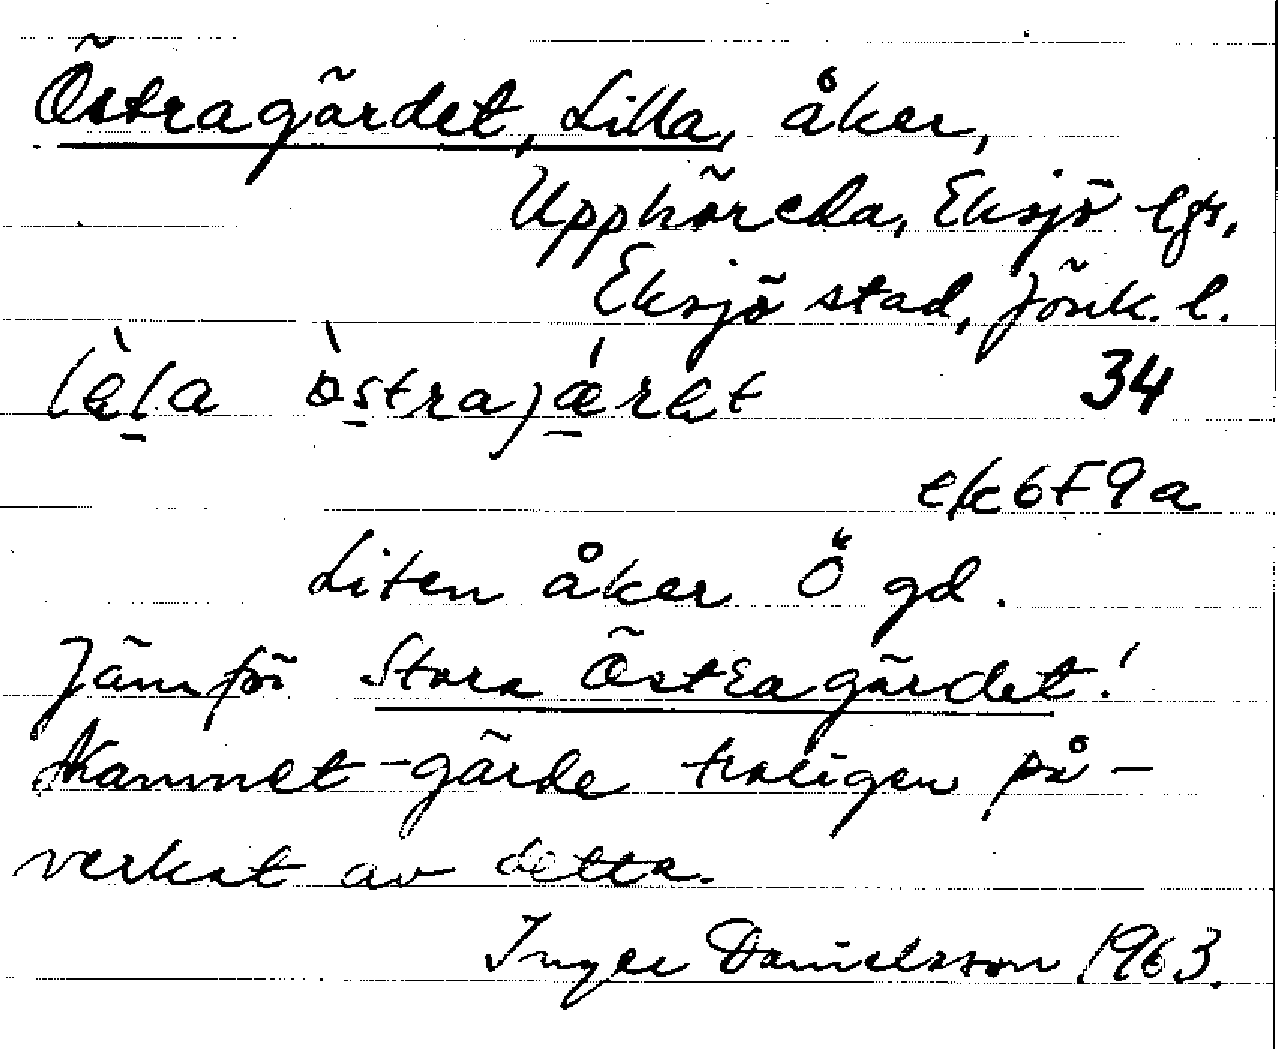 Östragärdet, Lilla, åker,
Upphöreda, Eksjö lfs,
Eksjö stad, Jönk. l.
lè̠la ò̠straȷǽ̠rət 34
ek 6F9a
Liten åker Ö gd.
Jämför Stora Östragärdet!
Namnet -gärde troligen på-
verkat av detta.
Inger Danielsson 1963.